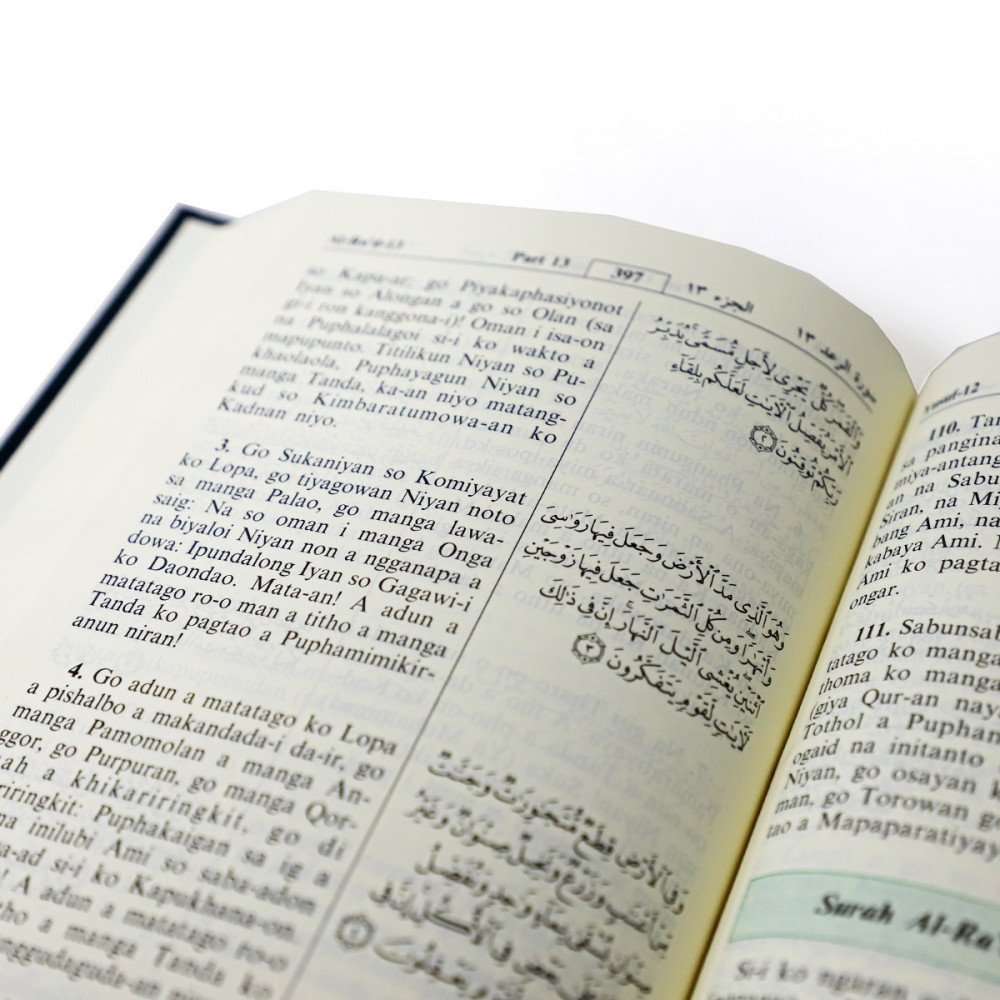 Part 13
397
الجزء ١٣
سورة الرعد ١٣
so Kapa-ar; go Piyakaphasiyonot
Iyan so Alongan a go so Olan (sa
gi-i ron kanggona-i)! Oman i isa-on
na Puphalalagoi si-i ko wakto a
mapupunto. Titilikun Niyan so Pu-
khaolaola, Puphayagun Niyan so
manga Tanda, ka-an niyo matang-
kud so Kimbaratumowa-an ko
Kadnan niyo.
3. Go Sukaniyan so Komiyayat
ko Lopa, go tiyagowan Niyan noto
sa manga Palao, go manga lawa-
saig: Na so oman i manga Onga
na biyaloi Niyan non a ngganapa a
dowa: Ipundalong Iyan so Gagawi-i
ko Daondao. Mata-an! A adun a
matatago ro-o man a titho a manga
Tanda ko pagtao a Puphamimikir-
anun niran!
4. Go adun a matatago ko Lopa
a pishalbo a makandada-i da-ir, go
manga Pamomolan a manga An-
ggor, go Purpuran, go manga Qor-
a khikariringkit, go di
riringkit: Puphakaigan sa ig a
inilubi Ami so saba-adon
si-i ko Kapukhana-on.
A adun a matatago ro-o
a manga Tanda ko
وَٱلْقَمَرَ كُلٌّ يَجْرِى لِأَجَلٍ مُّسَمًّى يُدَبِّرُ
ٱلْأَمْرَ يُفَصِّلُ ٱلْآيَٰتِ لَعَلَّكُم بِلِقَآءِ
رَبِّكُمْ تُوقِنُونَ ٢
وَهُوَ ٱلَّذِى مَدَّ ٱلْأَرْضَ وَجَعَلَ فِيهَا رَوَٰسِىَ
وَأَنْهَٰرًا وَمِن كُلِّ ٱلثَّمَرَٰتِ جَعَلَ فِيهَا زَوْجَيْنِ
ٱثْنَيْنِ يُغْشِى ٱلَّيْلَ ٱلنَّهَارَ إِنَّ فِى ذَٰلِكَ
لَآيَٰتٍ لِّقَوْمٍ يَتَفَكَّرُونَ ٣
وَفِى ٱلْأَرْضِ قِطَعٌ مُّتَجَٰوِرَٰتٌ وَجَنَّٰتٌ
مِّنْ أَعْنَٰبٍ وَزَرْعٌ وَنَخِيلٌ صِنْوَانٌ وَغَيْرُ
صِنْوَانٍ يُسْقَىٰ بِمَآءٍ وَٰحِدٍ وَنُفَضِّلُ
بَعْضَهَا عَلَىٰ بَعْضٍ فِى ٱلْأُكُلِ إِنَّ فِى
Yusuf-12
110.
sa pangina
miya-antang
an na Sabu
Siran, na Mi
bang Ami, na
kabaya Ami.
Ami ko pagta
ongar.
111. Sabunsal
tatago ko manga
thoma ko manga
(giya Qur-an nay,
Tothol a Puphan
ogaid na initanto
Niyan, go osayan k
man, go Torowan go
tao a Mapaparatiyay
Surah Al-Ra
Si-i ko ngaran